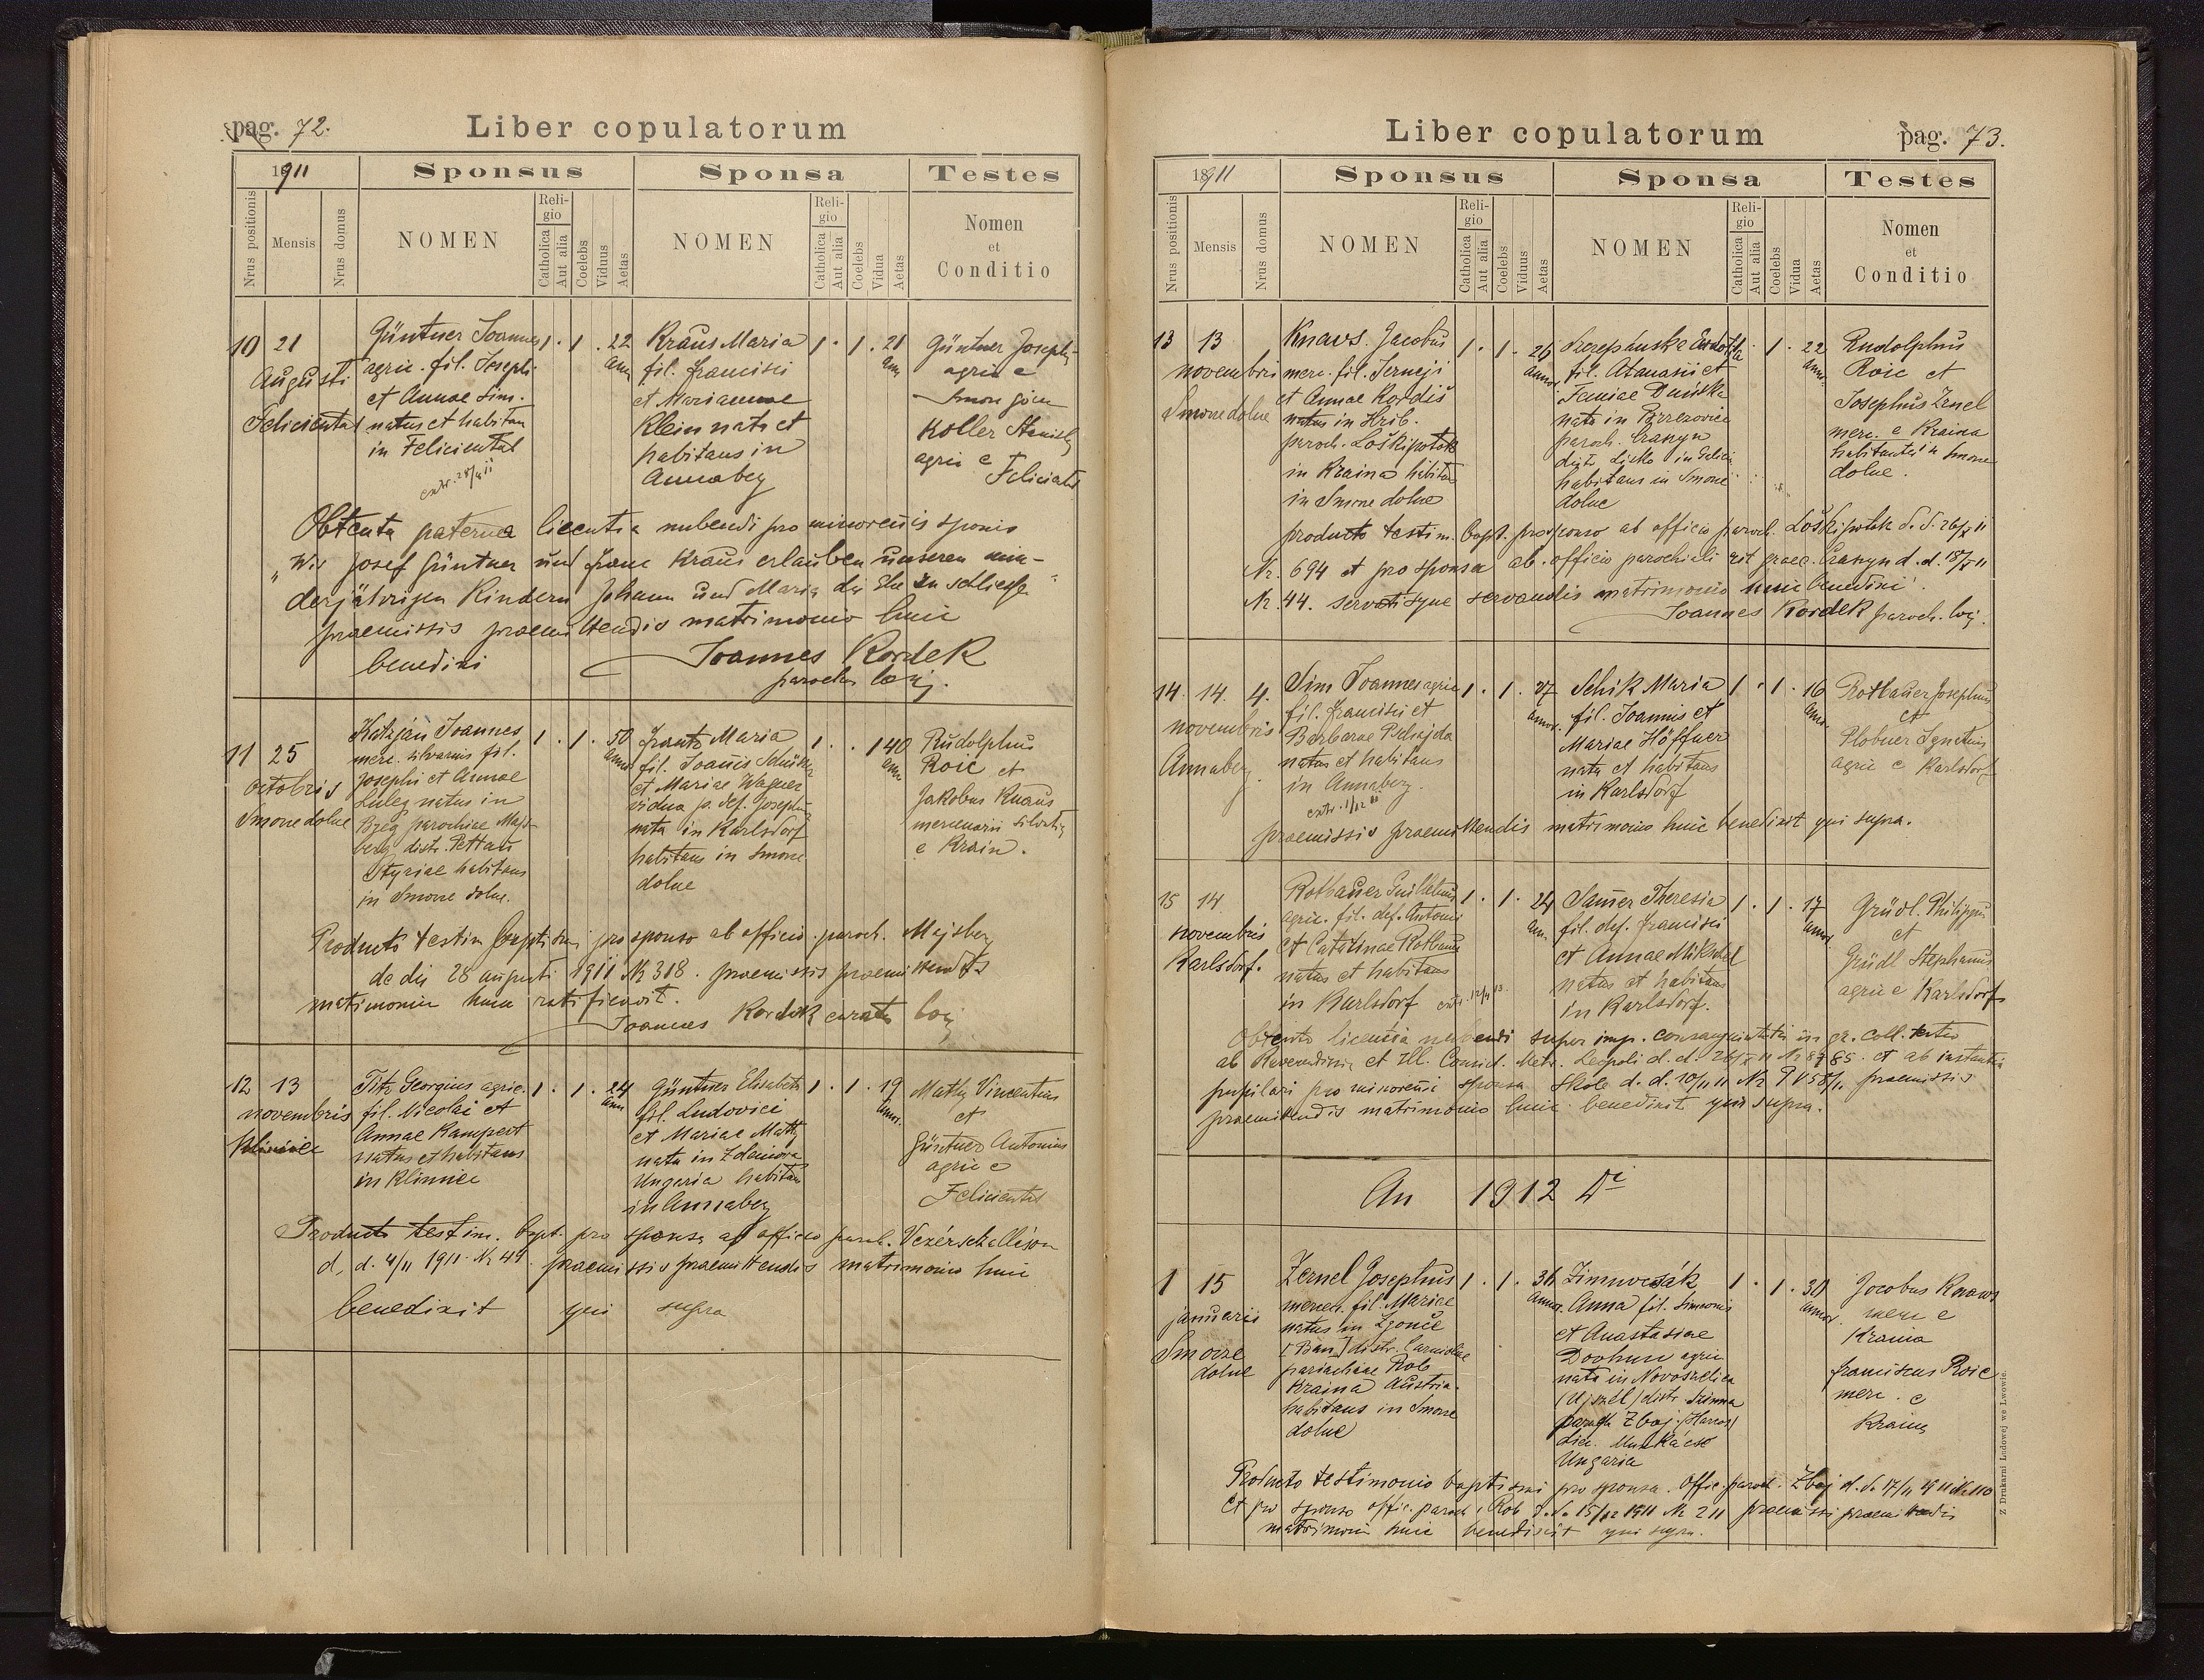 pag. 72.
Liber copulatorum
1911
Sponsus
Sponsa
Testes
Nrus positionis
Mensis
Nrus domus
NOMEN
Religio
Catholica
Aut alia
Coelebs
Viduus
Aetas
NOMEN
Religio
Catholica
Aut alia
Coelebs
Vidua
Aetas
Nomen
et
Conditio
10 21
Augusti
Felicienthal
Güntner Joannes
agric. fil. Josephi
et Annae Sim.
natus et habitan
in Feliciental
1 . 1 . 22
Ann
Kraus Maria
fil. Francisci
et Mariannae
Klein nata et
habitans in
Annaberg
1 . 1 . 21
Ann
Güntner Joseph
agric e
Smorze górn
Koller
agric e
Obtenta paterna licentia nubendi pro minorenis sponis
„Wir Josef Güntner und Franz Kraus erlauben unseren min-
derjährigen Kindern Johann und Maria die Ehe zu schliessen"
praemissis praemittendis matrimonio huic
benedixi
Joannes Kordek
parochus loci.
11 25
octobris
Smorze dolne
Katzjan Joannes
merc. silvarius fil.
Josephi et Annae
Luleg natus in
Breg parochiae Majs-
berg distr. Pettau
Styriae habitans
in Smorze dolne.
1 . 1 . 50
Ann
Frantz Maria
fil. Joannis
et Mariae Wagner
vidua p. def. Joseph
nata in Karlsdorf
habitans in Smorze
dolne
1 . . 1 40
Ann
Rudolphus
Roic et
Jakobus Knaus
mercenarii
e Krain.
Producto testim baptismi pro sponso ab officio paroch. Majsberg
de die 28 augusti 1911 Nr 318. praemissis praemittendis
matrimonium huic ratificavit.
Joannes Kordek curatus loci
12 13
novembris
Klimiec
Titz Georgius agric.
fil. Nicolai et
Annae Kampert
natus et habitans
in Klimiec
1 . 1 . 24
Ann
Güntner Elisabeth
fil. Ludovici
et Mariae Math
nata in Zdenova
Ungaria habitan
in Annaberg
1 . 1 . 19
Ann.
Mathy Vincentius
et
Güntner Antonius
agric e
Feliciental
Producto testim. bapt. pro sponsa ab officio paroch. Vezérszállás
d. d. 4/11 1911. Nr 49. praemissis praemittendis matrimonio huic
benedixit qui supra
Liber copulatorum
pag. 73.
1911
Sponsus
Sponsa
Testes
Nrus positionis
Mensis
Nrus domus
NOMEN
Religio
Catholica
Aut alia
Coelebs
Viduus
Aetas
NOMEN
Religio
Catholica
Aut alia
Coelebs
Vidua
Aetas
Nomen
et
Conditio
13 13
novembris
Smorze dolne
Knavs. Jacobus
merc. fil. Jerneji
et Annae Kordiš
natus in Hrib.
paroch. Loškipotok
in Kraina habitan
in Smorze dolne
1 . 1 . 26
Annor
fil. Atanasii et
nata in
paroch. Krasyn
distr. Lisko in Galicia
habitans in Smorze
dolne
1 . 22
Annor.
Rudolphus
Roic et
Josephus Zrnel
merc. e Kraina
habitantes in Smorze
dolne.
producto testim. bapt. pro sponso ab officio paroch. Loškipotok d. d. 26/X 11
Nr. 694 et pro sponsa ab officio parochiali rit graec. Krasyn d. d. 18/X 11
Nr. 44. servatisque servandis matrimonio huic benedixi.
Joannes Kordek paroch. loci.
14. 14. 4.
novembris
Annaberg.
Sim Joannes agric
fil. Francisci et
Barbarae
natus et habitans
in Annaberg.
extr. 1/12 11
1 . 1 . 27
Annor.
Schik Maria
fil. Joannis et
Mariae Höffner
nata et habitans
in Karlsdorf
1 . 1 . 16
Annor.
Rotbauer Josephus
et
Plobner Ignatius
agric e Karlsdorf
praemissis praemittendis matrimonio huic benedixit qui supra.
15 14
novembris
Karlsdorf.
Rotbauer Guilelmus
agric. fil. def. Antonii
et Catarinae Rotbauer
natus et habitans
in Karlsdorf
1 . 1 . 24
Ann.
Sauer Theresia
fil. def. Francisci
et Annae Mikschel
natus et habitans
in Karlsdorf.
1 . 1 . 17
Annor
Gründl. Philippus
et
Gründl Stephanus
agric e Karlsdorf
Obtenta licentia nubendi super imp. consanguinitatis in gr. coll. tertio
ab Reverendissimo et Ill. Consist. Metr. Leopoli d. d. 26/X 11 Nr 8985. et ab instantia
pupilari pro minorenni sponsa Skole d. d. 10/11 11 Nr P V 58/11. praemissis
praemittendis matrimonio huic benedixit qui supra.
An 1912 Di
1 15
januarii
Smorze
dolne
Zernel Josephus
mercen. fil. Mariae
natus in Zgonče
[Ban] distr. Carniolae
parochiae Rob
Kraina Austria.
habitans in Smorze
dolne
1 . 1 . 36
Annor.
Zimnovčák
Anna fil. Simeonis
et Anastasiae
Dovhun agric
nata in Novoselica
(Ujszél) distr. Szinna
paroch. Zboj. (Harcos)
diec. Munkácse
Ungaria
1 . 1 . 30
Annor.
Jacobus Knaws
merc e
Kraina
Franciscus Roic
merc. e
Kraina
Producto testimonio baptismi pro sponsa. Offic. paroch. Zboj d. d. 17/11 1911 Nr 110
et pro sponso offic. paroch. Rob d. d. 15/12 1911 Nr 211 praemissis praemittendis
matrimonio huic benedixit qui supra.
Z Drukarni Ludowej we Lwowie.